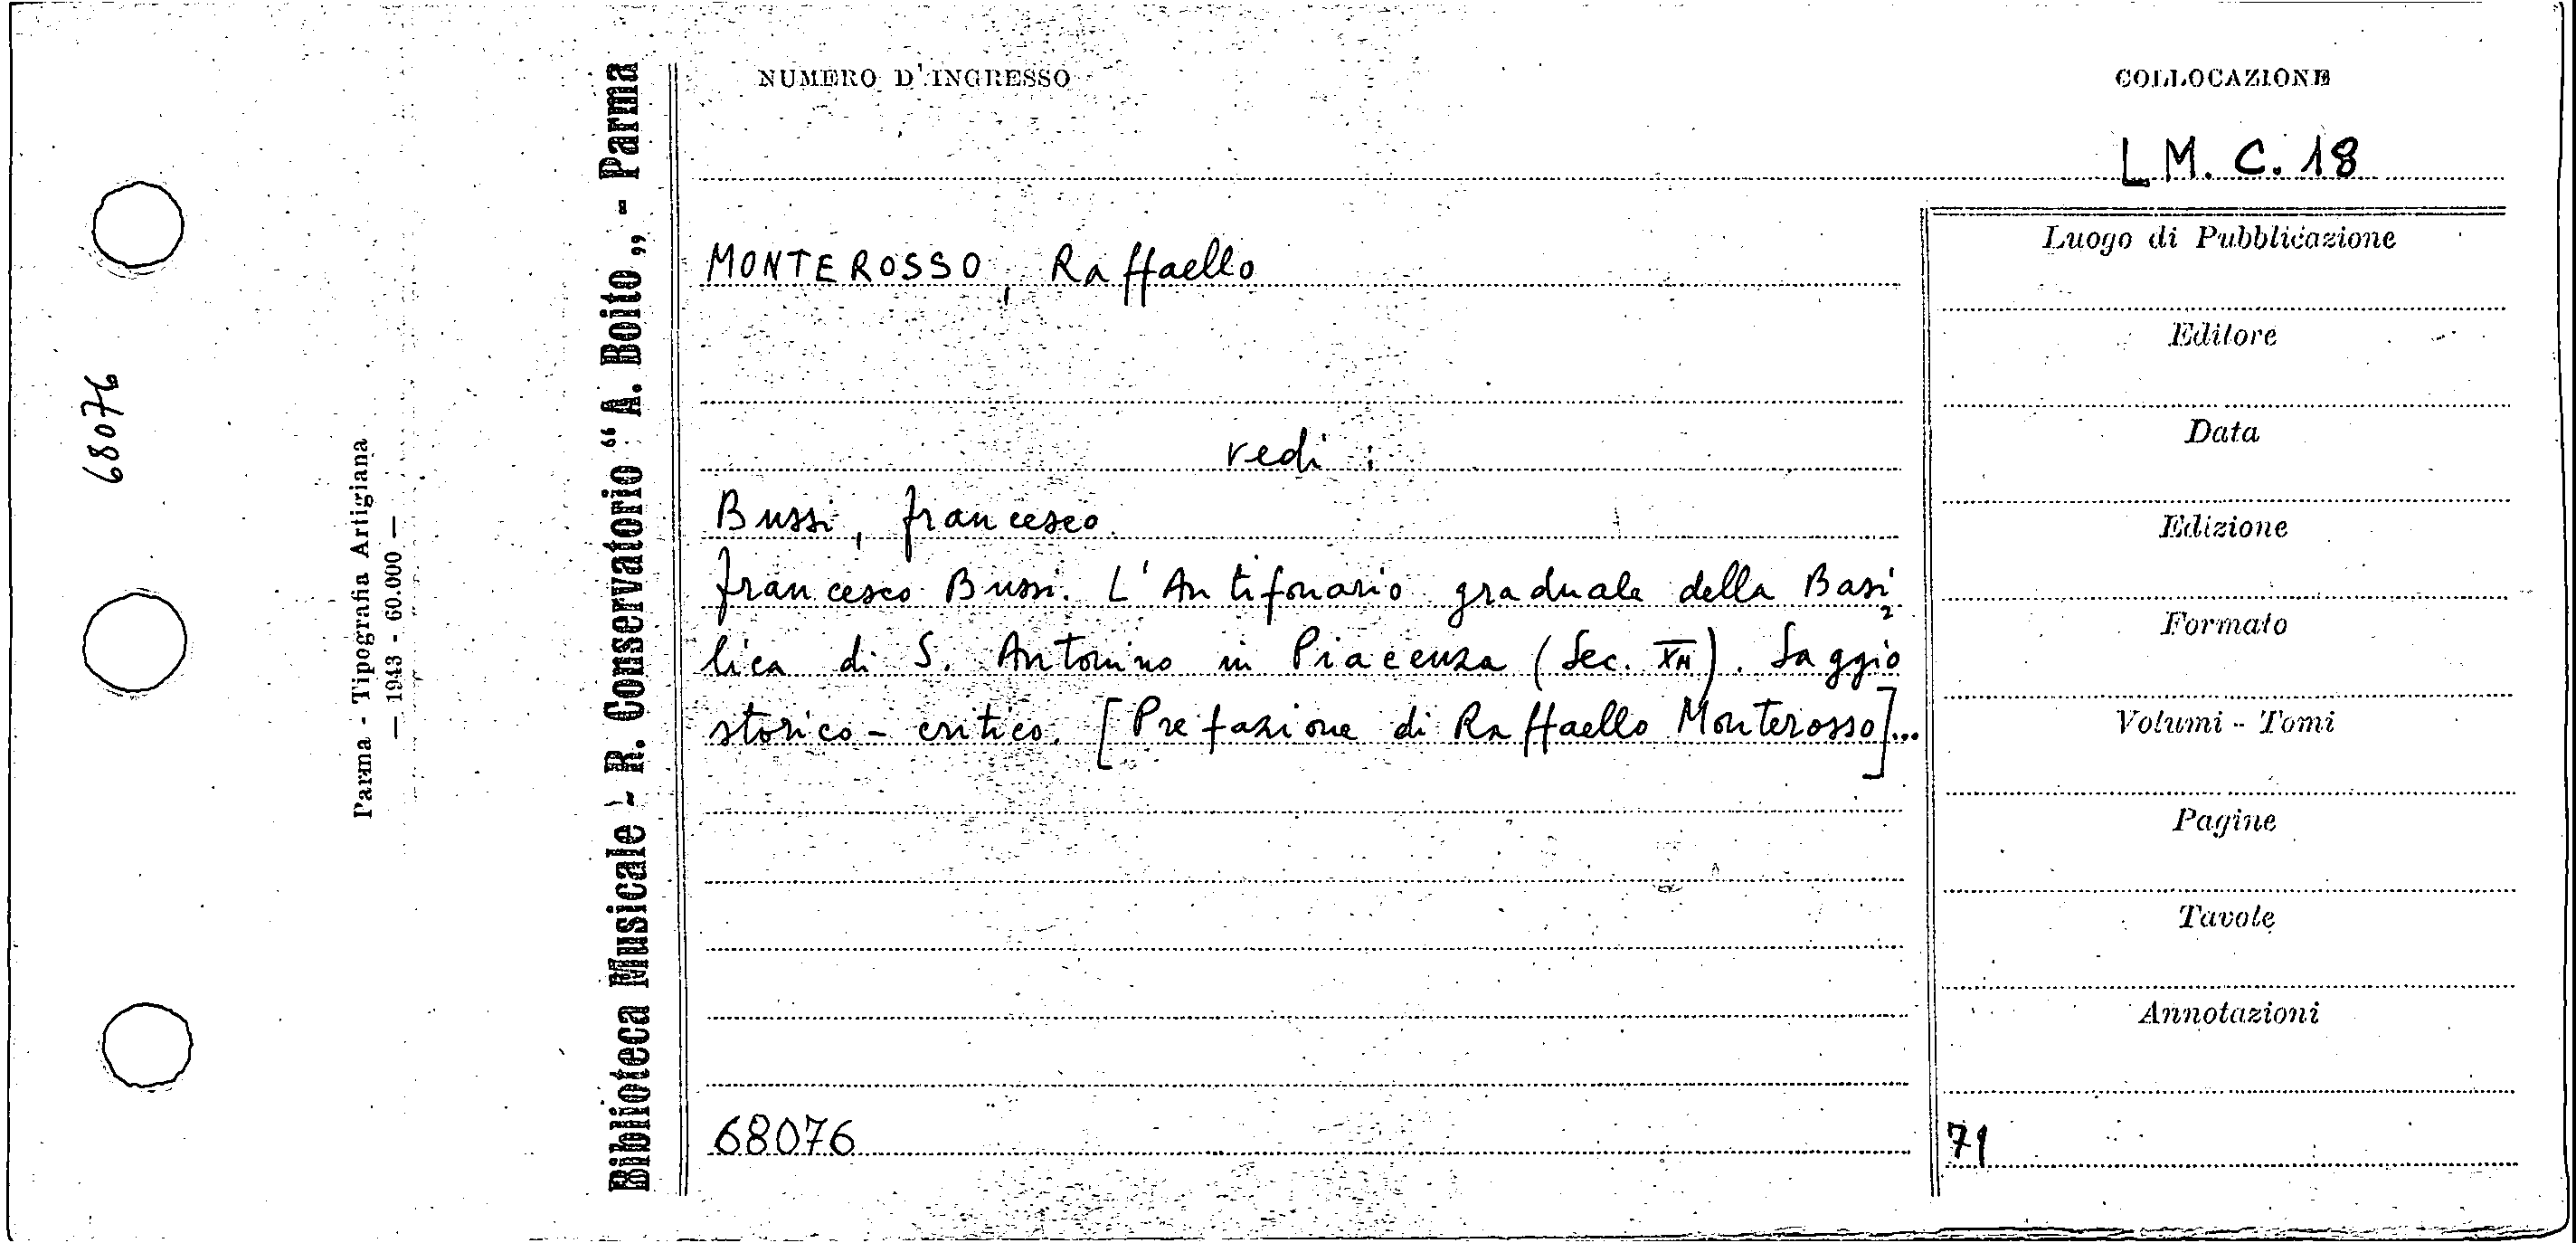 NUMERO D'INGRESSO
COLLOCAZIONE
L M. C. 18
MONTEROSSO, Raffaello
vedi :
Bussi, Francesco
Francesco Bussi. L'Antifonario graduale della Basi=
lica di S. Antonino in Piacenza (Sec. XII). Saggio
storico-critico. [Prefazione di Raffaello Monterosso]...
68076
Luogo di Pubblicazione
Editore
Data
Edizione
Formato
Volumi - Tomi
Pagine
Tavole
Annotazioni
71
Biblioteca Musicale - R. Conservatorio “A. Boito„ - Parma
Parma - Tipografia Artigiana
— 1943 - 60.000 —
68076